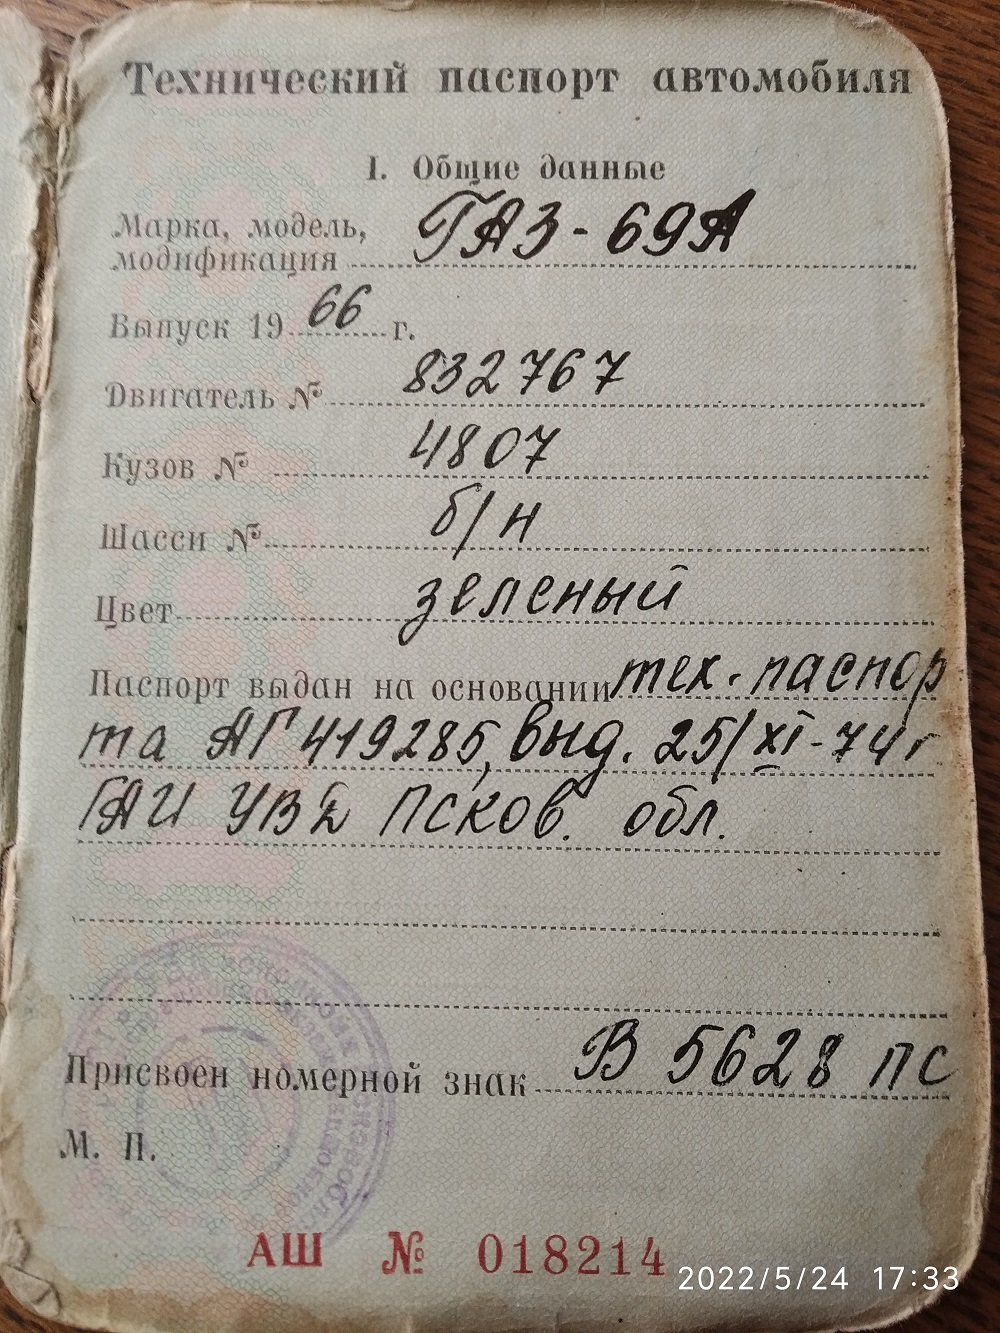 Технический паспорт автомобиля
I. Общие данные
Марка, модель,
модификация ГАЗ-69А
Выпуск 19 66 г.
Двигатель № 832767
Кузов № 4807
Шасси № б/н
Цвет зеленый
Паспорт выдан на основании тех. паспор
та АГ 419285, выд. 25/XI-74 г
ГАИ УВД Псков. обл.
Присвоен номерной знак В 5628 ПС
М. П.
АШ № 018214
2022/5/24 17:33